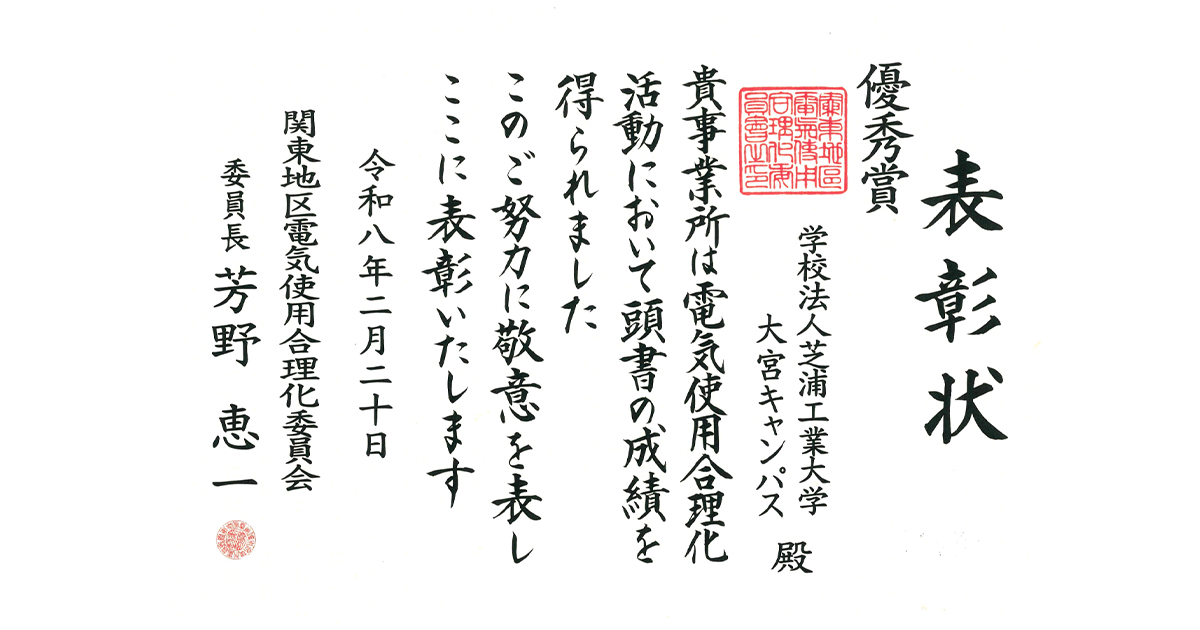 表彰状
優秀賞
学校法人芝浦工業大学
大宮キャンパス
殿
貴事業所は電気使用合理化
活動において頭書の成績を
得られました
このご努力に敬意を表し
ここに表彰いたします
令和八年二月二十日
関東地区電気使用合理化委員会
委員長 芳野 恵一